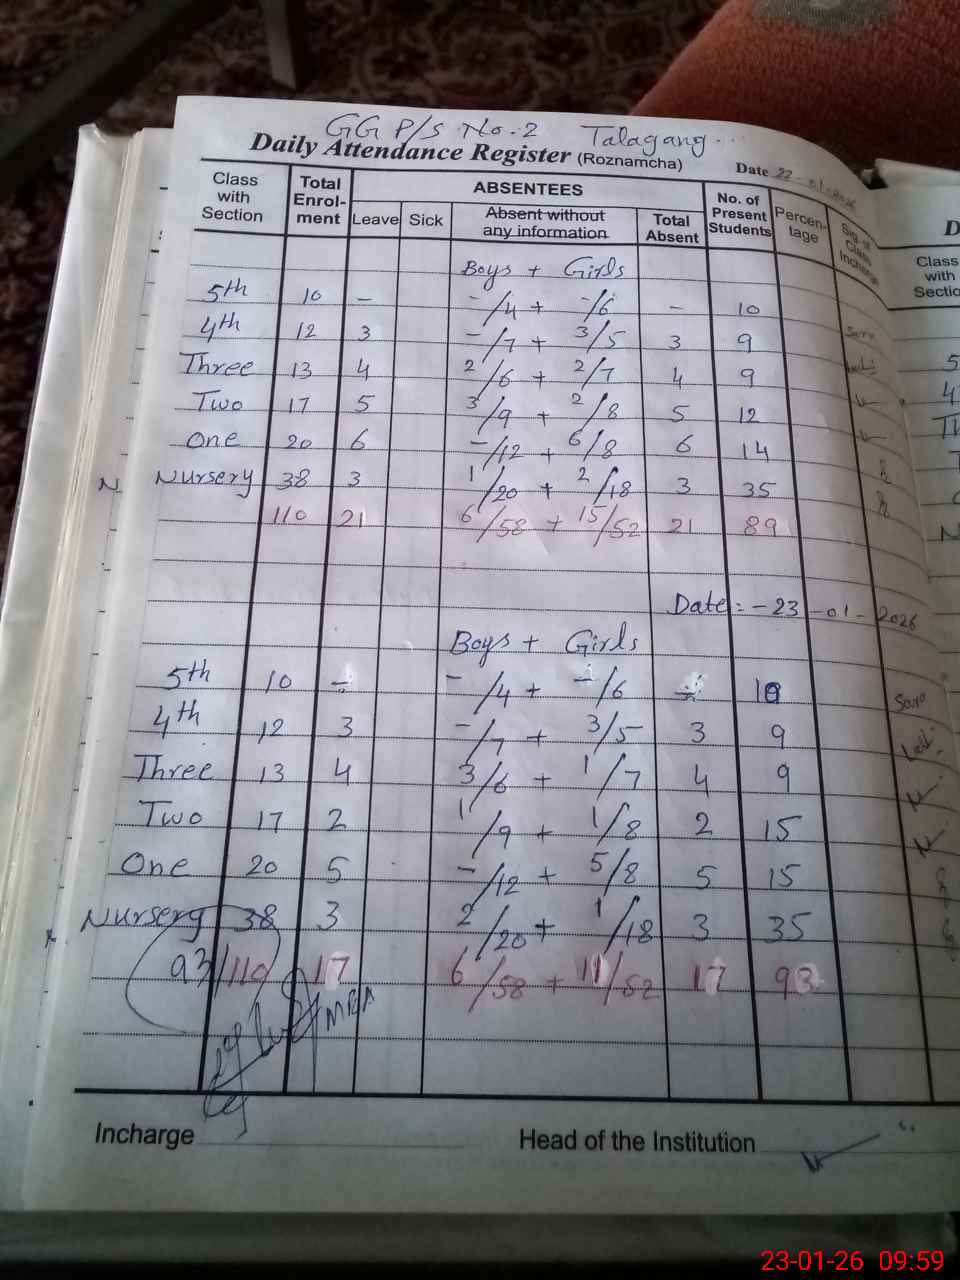 GG P/S No.2 Talagang...
Daily Attendance Register (Roznamcha) Date 22-01-2026
Class with Section Total Enrol-ment ABSENTEES No. of Present Students Percen-tage Sig. of Class Incharge
Leave Sick Absent without any information Total Absent
Boys + Girls
5th 10 - -/4 + -/6 - 10
4th 12 3 -/7 + 3/5 3 9
Three 13 4 2/6 + 2/7 4 9
Two 17 5 3/9 + 2/8 5 12
One 20 6 -/12 + 6/8 6 14
Nursery 38 3 1/20 + 2/18 3 35
110 21 6/58 + 15/52 21 89
Date = - 23 - 01 - 2026
Boys + Girls
5th 10 - -/4 + -/6 - 10
4th 12 3 -/7 + 3/5 3 9
Three 13 4 3/6 + 1/7 4 9
Two 17 2 1/9 + 1/8 2 15
One 20 5 -/12 + 5/8 5 15
Nursery 38 3 2/20 + 1/18 3 35
93/110 17 6/58 + 11/52 17 93
MEA
Incharge Head of the Institution
D
Class
with
Sectio
23-01-26 09:59